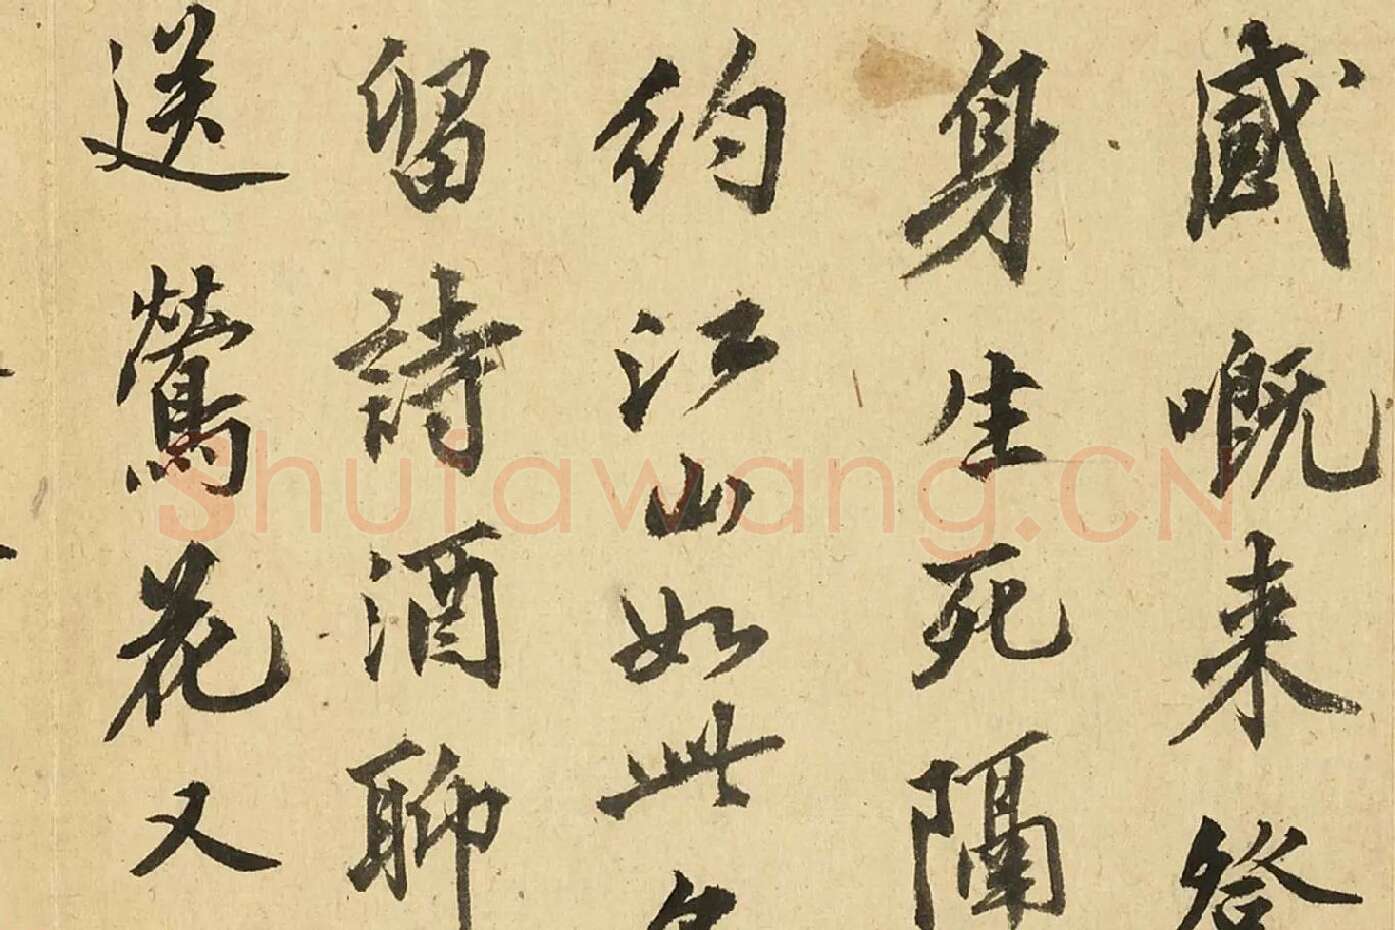 感嘅来登
身生死隔
約江山如此名
留詩酒聊
送鶯花又
Shufawang.CN